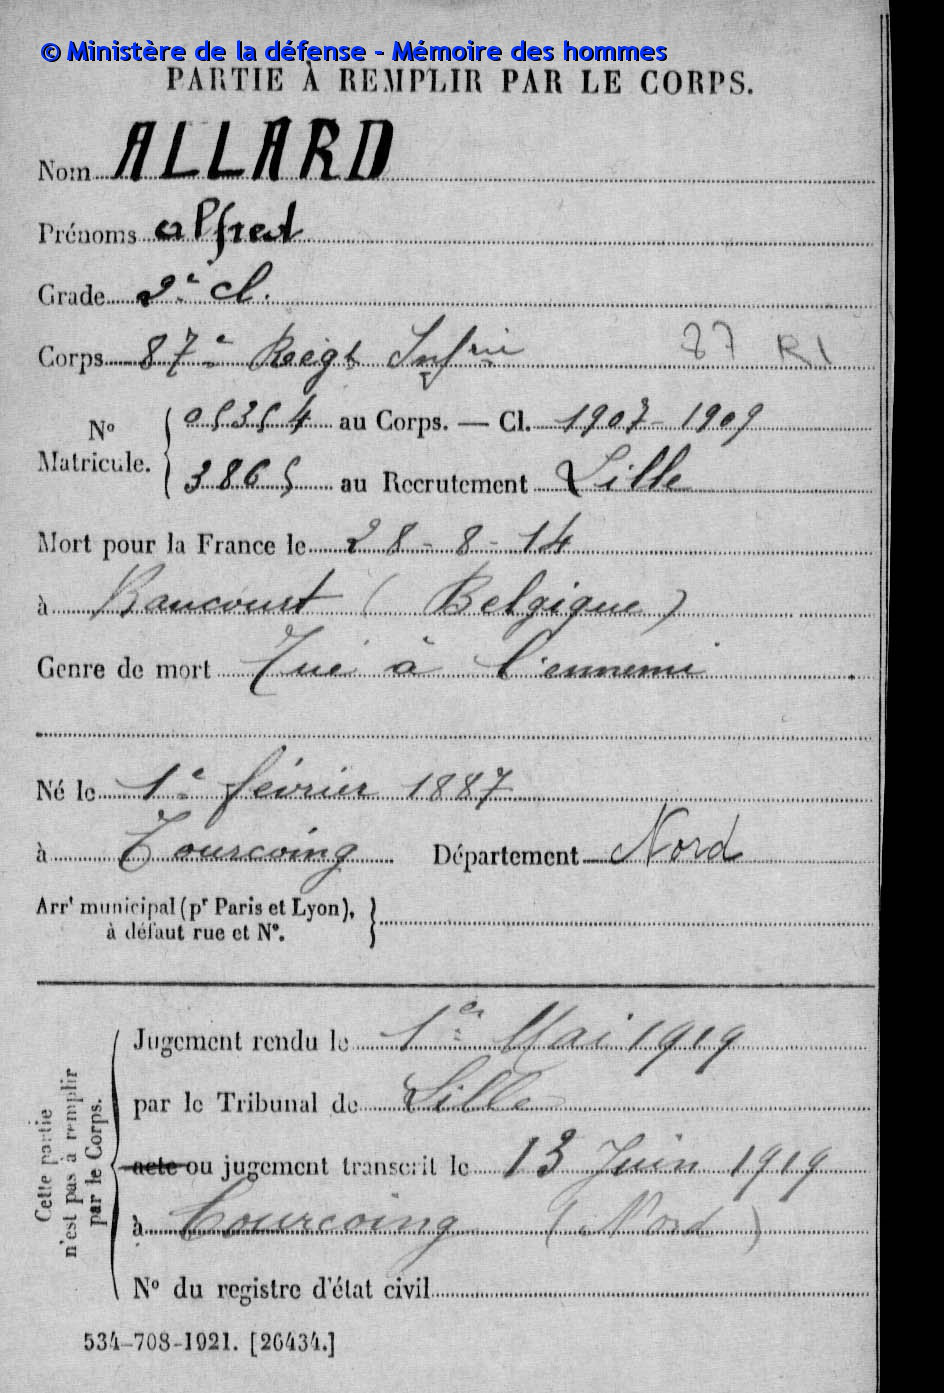 © Ministère de la défense - Mémoire des hommes
PARTIE À REMPLIR PAR LE CORPS.
Nom ALLARD
Prénoms alfred
Grade 2e cl.
Corps 87e Régt Infrie 87 RI
No Matricule. { 05354 au Corps. — Cl. 1907 - 1909
3865 au Recrutement Lille
Mort pour la France le 28 - 8 - 14
à Raucourt (Belgique)
Genre de mort Tué à l'ennemi
Né le 1e février 1887
à Tourcoing Département Nord
Arrt municipal (pr Paris et Lyon), }
à défaut rue et No.
Cette partie n'est pas à remplir par le Corps.
Jugement rendu le 1er Mai 1919
par le Tribunal de Lille
acte ou jugement transcrit le 13 Juin 1919
à Tourcoing (Nord)
No du registre d'état civil
534-708-1921. [26434.]